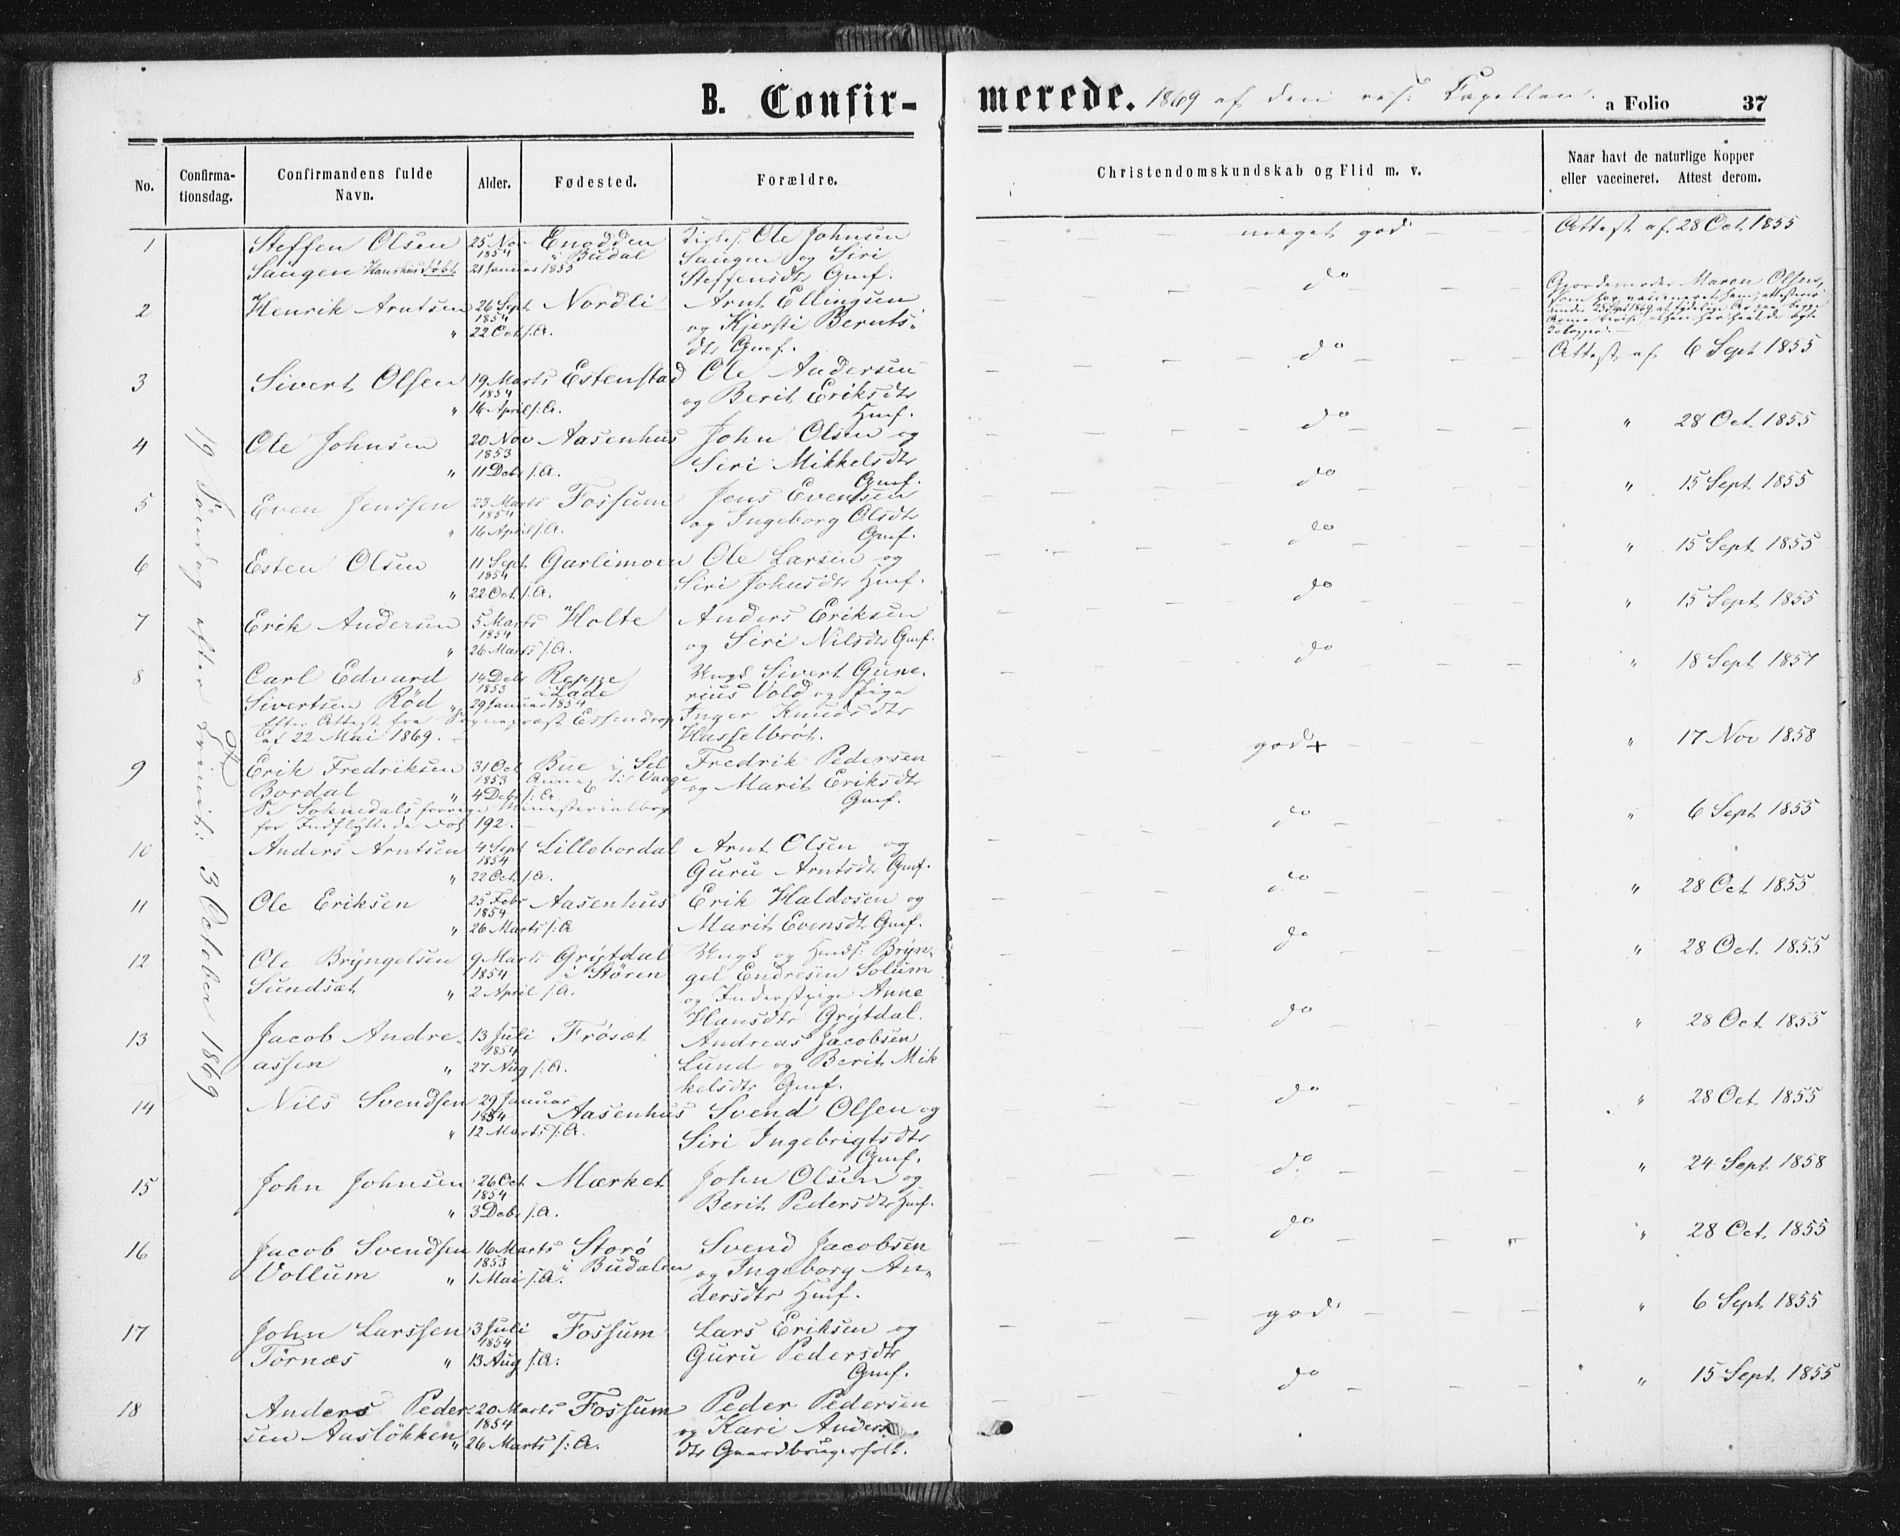 B. Confir-
merede. 1869 af den res: Capellan.
a Folio 37
No.
Confirma-
tionsdag.
Confirmandens fulde
Navn.
Alder.
Fødested.
Forældre.
Christendomskundskab og Flid m. v.
Naar havt de naturlige Kopper
eller vaccineret. Attest derom.
19 Søndag efter Trinit: 3 October 1869
1 Steffen Olsen 25 Nov Enodden Ole Johnsen meget god Attest af 28 Oct. 1855
1854 i Budal Saugen og Siri
Saugen døbt 21 Januar 1855
Steffensdtr Gmf.
2 Henrik Arntsen 26 Sept Nordli Arnt Ellingsen do Gjordemoder Maren Olsen,
1854 og Kjersti Bernts-
" 22 Oct s. A. dtr Gmf.
3 Sivert Olsen 19 Marts Estenstad Ole Andersen do Attest af 6 Sept 1855
1854 og Berit Eriksdtr
" 16 April s. A. Hmf.
4 Ole Johnsen 20 Nov Aasenhus John Olsen og do " 28 Oct. 1855
1853 Siri Mikkelsdtr
" 11 Debr s. A. Gmf.
5 Even Jenssen 23 Marts Fossum Jens Evensen do " 15 Sept. 1855
1854 og Ingeborg Olsdtr
" 16 April s. A. Gmf.
6 Esten Olsen 11 Sept. Garlimoen Ole Larsen og do " 15 Sept. 1855
1854 Siri Johnsdtr Hmf.
" 22 Oct. s. A.
7 Erik Andersen 5 Marts Holte Anders Eriksen do " 15 Sept. 1855
1854 og Siri Nilsdtr Gmf.
" 26 Marts s. A.
8 Carl Edvard 14 Debr Reppe Ungk Sivert Gune- do " 18 Sept. 1857
1853 i Lade rius Vold og Pige
Sivertsen Rød " 29 Januar 1854 Inger Knudsdtr
Efter Attest fra Sognepræst Essendrop Hasselbrøt.
af 22 Mai 1869.
9 Erik Fredriksen 31 Oct Bue i Sel Fredrik Pedersen god + " 17 Nov 1858
1853 Annex til Vaage og Marit Eriksdtr
Bordal " 4 Debr s. A. Gmf.
Se Soknedals forrige Ministerialbog
for Indflyttede Fol 192.
10 Anders Arntsen 4 Sept Lillebordal Arnt Olsen og do " 6 Sept 1855
1854 Guru Arntsdtr Gmf.
" 22 Oct. s. A.
11 Ole Eriksen 25 Febr Aasenhus Erik Haldosen og do " 28 Oct 1855
1854 Marit Evensdtr Gmf.
" 26 Marts s. A.
12 Ole Bryngelsen 9 Marts Grytdal Ungk og Huusf: Bryn- do " 28 Oct. 1855
1854 i Støren gel Endresen Solum
Sundsæt " 2 April s. A. og Inderstpige Anne
Hansdtr Grytdal.
13 Jacob Andre- 13 Juli Frøsæt Andreas Jacobsen do " 28 Oct. 1855
1854 Lund og Berit Mik
assen " 27 Aug s. A. kelsdtr Gmf.
14 Nils Svendsen 29 Januar Aasenhus Svend Olsen og do " 28 Oct. 1855
1854 Siri Ingebrigtsdtr
" 12 Marts s. A. Gmf.
15 John Johnsen 26 Oct Mærket John Olsen og do " 24 Sept. 1858
1854 Berit Pedersdtr Hmf.
" 3 Debr s. A.
16 Jacob Svendsen 16 Marts Storø Svend Jacobsen do " 28 Oct. 1855
1853 i Budalen og Ingeborg An-
Vollum " 1 Mai s. A. dersdtr Hmf.
17 John Larssen 3 Juli Fossum Lars Eriksen og god " 6 Sept. 1855
1854 Guru Pedersdtr
Tørnæs " 13 Aug s. A. Gmf.
18 Anders Peder- 20 Marts Fossum Peder Pedersen do " 15 Sept. 1855
1854 og Kari Anders
sen Aasløkken " 26 Marts s. A. dtr Gaardbrugerfolk.